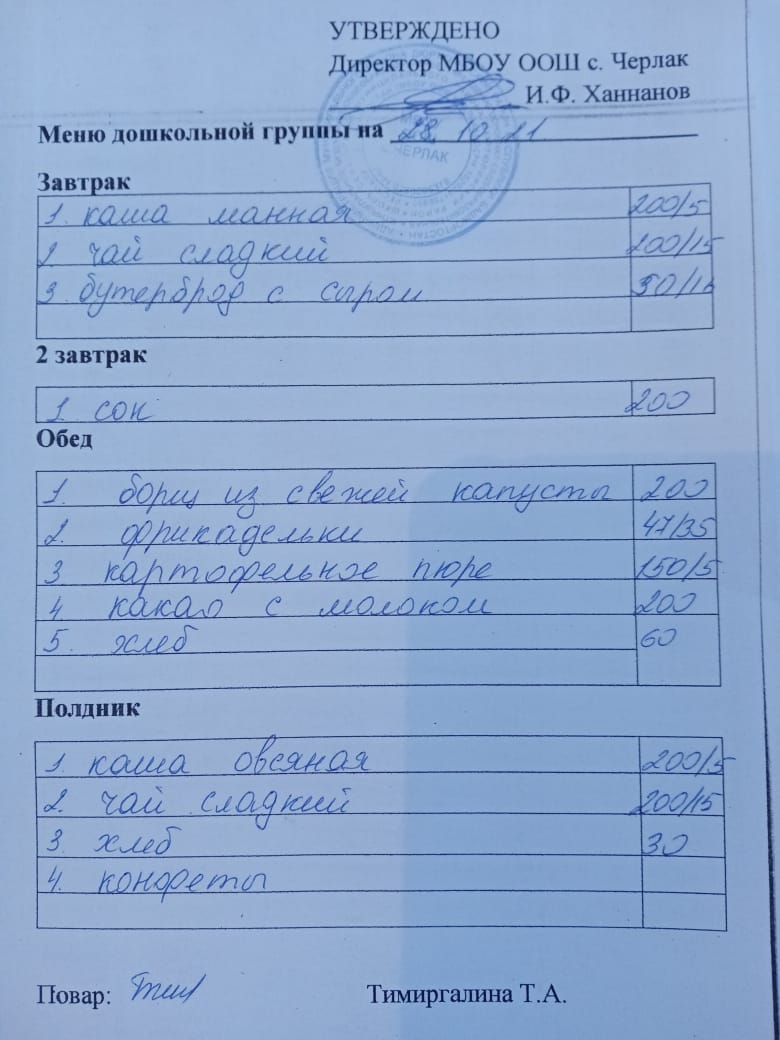 УТВЕРЖДЕНО
Директор МБОУ ООШ с. Черлак
И.Ф. Ханнанов
Меню дошкольной группы на 28.10.21
ЧЕРЛАК
Завтрак
1. каша манная 200/5
2 чай сладкий 200/15
3 бутерброд с сыром 30/16
2 завтрак
1. сок 200
Обед
1. борщ из свежей капусты 200
2. фрикадельки 47/35
3 картофельное пюре 150/5
4. какао с молоком 200
5. хлеб 60
Полдник
1. каша овсяная 200/5
2. чай сладкий 200/15
3. хлеб 30
4. конфеты
Повар: Тимиргалина Т.А.